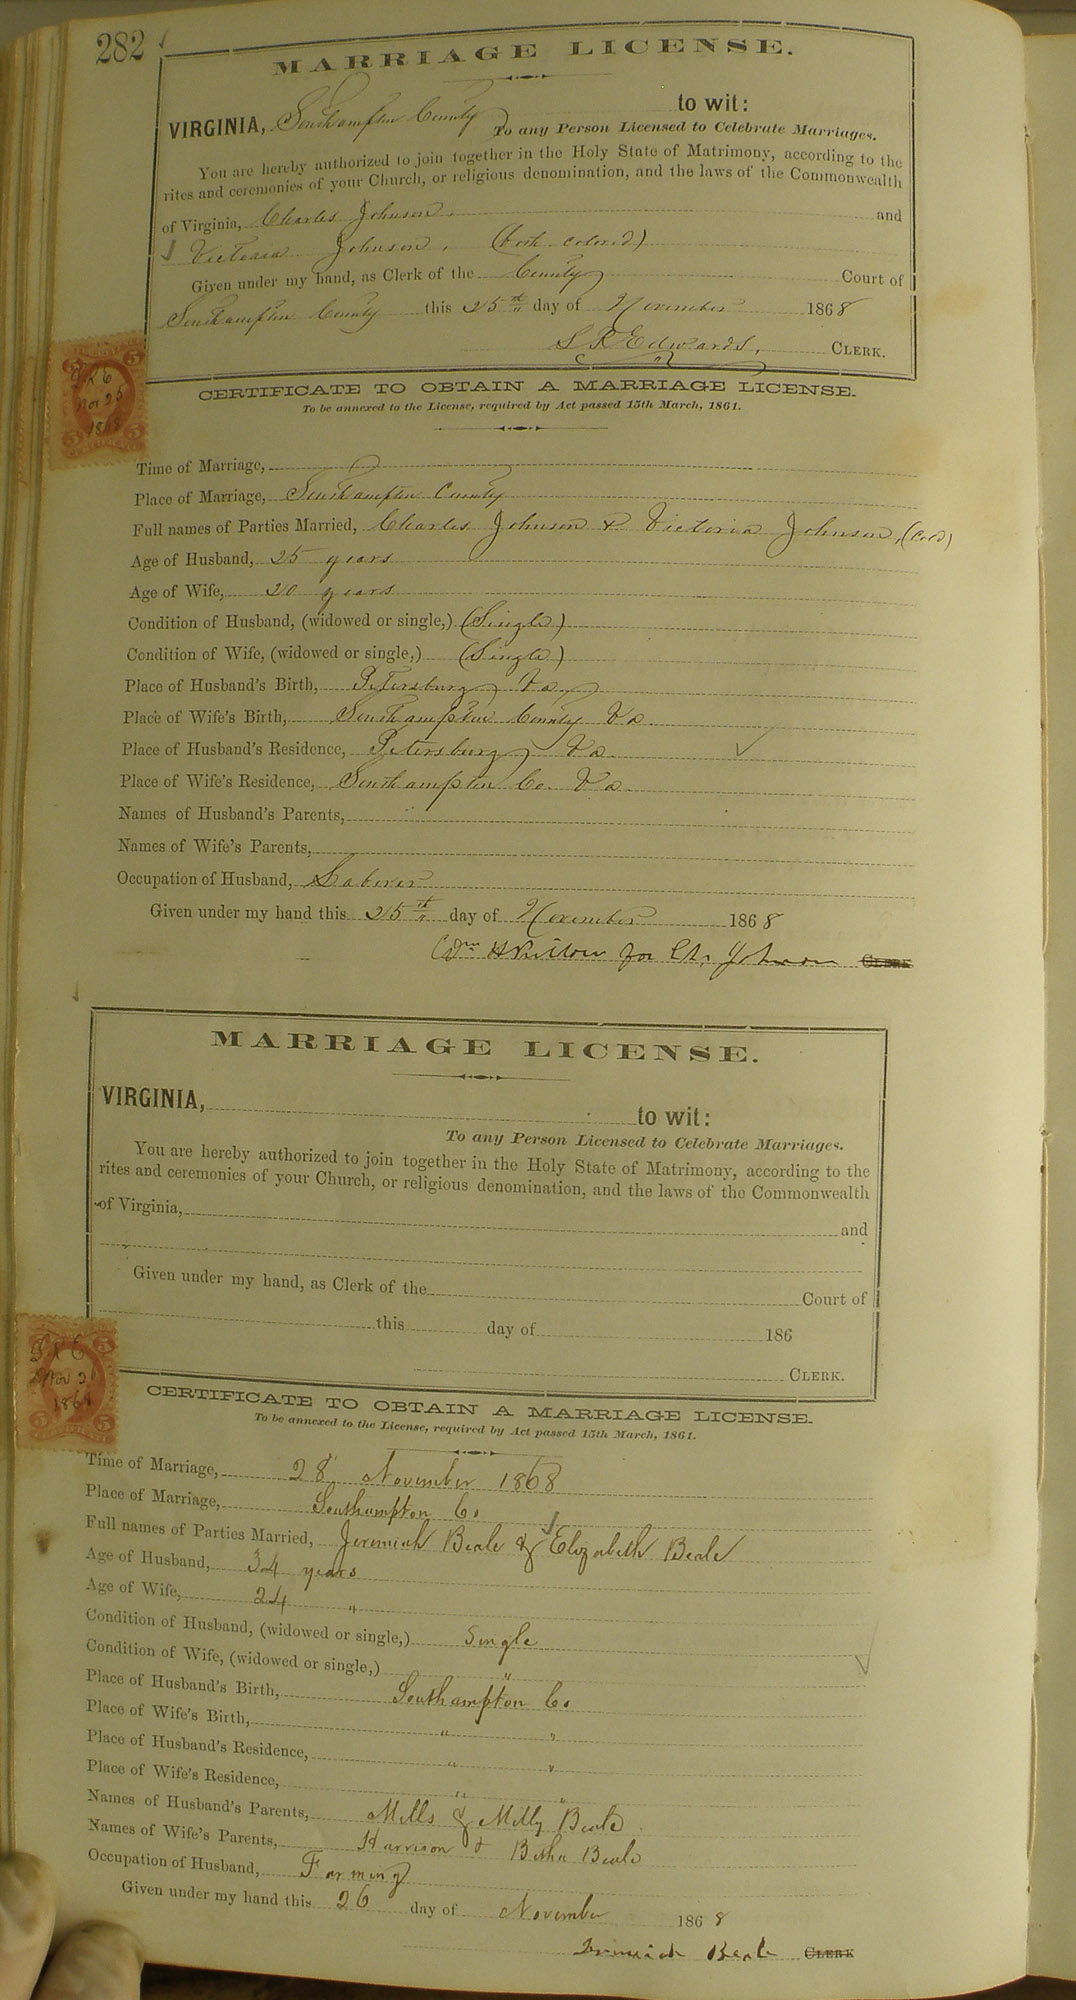 282
MARRIAGE LICENSE.
VIRGINIA, Southampton County to wit:
To any Person Licensed to Celebrate Marriages.
You are hereby authorized to join together in the Holy State of Matrimony, according to the
rites and ceremonies of your Church, or religious denomination, and the laws of the Commonwealth
of Virginia, Charles Johnson, and
Victoria Johnson, (both colored)
Given under my hand, as Clerk of the County Court of
Southampton County this 25th day of November 1868
S R Edwards, CLERK.
5 5
Nov 25
1868
5 5
CERTIFICATE TO OBTAIN A MARRIAGE LICENSE.
To be annexed to the License, required by Act passed 15th March, 1861.
Time of Marriage,
Place of Marriage, Southampton County
Full names of Parties Married, Charles Johnson & Victoria Johnson, (Cold)
Age of Husband, 25 years
Age of Wife, 20 years
Condition of Husband, (widowed or single,) (Single)
Condition of Wife, (widowed or single,) (Single)
Place of Husband's Birth, Petersburg Va
Place of Wife's Birth, Southampton County Va
Place of Husband's Residence, Petersburg Va
Place of Wife's Residence, Southampton Co. Va
Names of Husband's Parents,
Names of Wife's Parents,
Occupation of Husband, Laborer
Given under my hand this 25th day of November 1868
for Ch. Johnson CLERK
MARRIAGE LICENSE.
VIRGINIA, to wit:
To any Person Licensed to Celebrate Marriages.
You are hereby authorized to join together in the Holy State of Matrimony, according to the
rites and ceremonies of your Church, or religious denomination, and the laws of the Commonwealth
of Virginia, and
Given under my hand, as Clerk of the Court of
this day of 186
CLERK.
5
Nov 26
1868
5 5
CERTIFICATE TO OBTAIN A MARRIAGE LICENSE.
To be annexed to the License, required by Act passed 15th March, 1861.
Time of Marriage, 28 November 1868
Place of Marriage, Southampton Co.
Full names of Parties Married, Jeremiah Beale & Elizabeth Beale
Age of Husband, 34 years
Age of Wife, 24 "
Condition of Husband, (widowed or single,) Single
Condition of Wife, (widowed or single,) "
Place of Husband's Birth, Southampton Co.
Place of Wife's Birth, " "
Place of Husband's Residence, " "
Place of Wife's Residence, " "
Names of Husband's Parents, Mills & Milly Beale
Names of Wife's Parents, Harrison & Beale
Occupation of Husband, Farming
Given under my hand this 26 day of November 1868
Jeremiah Beale CLERK